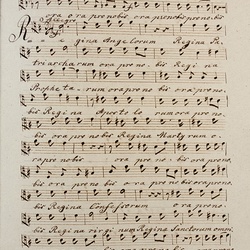 ora ora pro nobis ora pro nobis pro nobis
Regina Angelorum Regina Pa
triarcharum ora pro no- bis Regina
Propheta- rum ora pro nobis ora pro no
bis Regina Aposto lo rum ora pro no-
bis ora pro nobis Regina Martyrum o-
ra pro nobis ora pro no- bis ora pro no
bis ora pro no bis ora pro no bis ora pro no
bis Regina Confessorum ora pro no-
bis Regina virgi num Regina Sanctorum omni